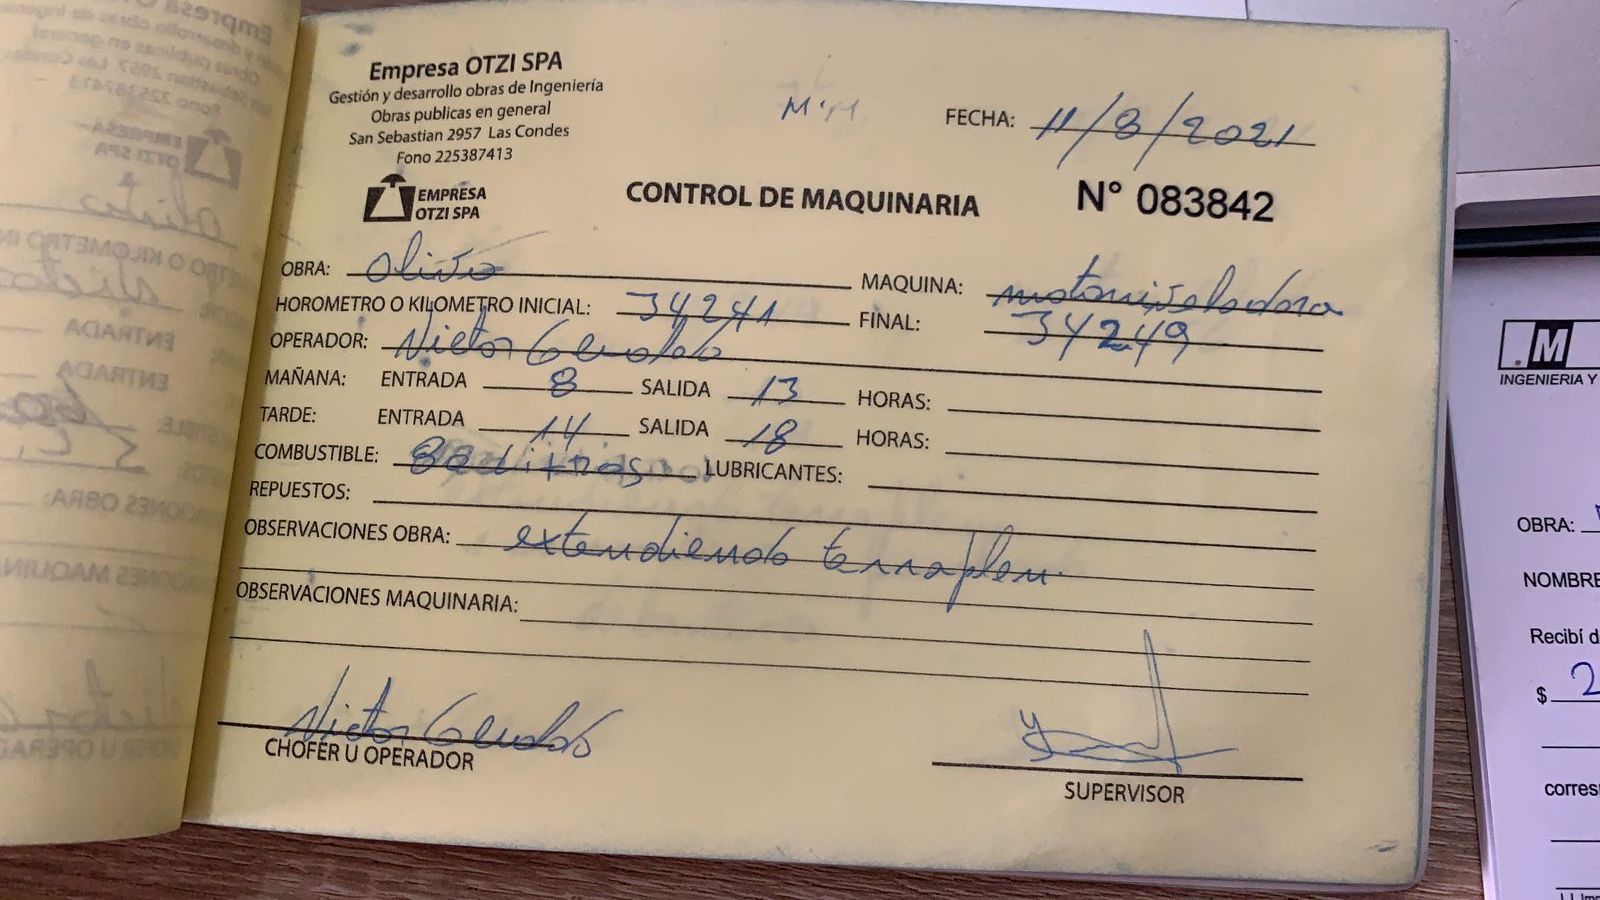 Empresa OTZI SPA
Gestión y desarrollo obras de Ingeniería
Obras publicas en general
San Sebastian 2957 Las Condes
Fono 225387413
M.M.
FECHA: 11/8/2021
EMPRESA
OTZI SPA
CONTROL DE MAQUINARIA
N° 083842
OBRA: Olivo MAQUINA: motoniveladora
HOROMETRO O KILOMETRO INICIAL: 34241 FINAL: 34249
OPERADOR: Victor
MAÑANA: ENTRADA 8 SALIDA 13 HORAS:
TARDE: ENTRADA 14 SALIDA 18 HORAS:
COMBUSTIBLE: litros LUBRICANTES:
REPUESTOS:
OBSERVACIONES OBRA: extendiendo terraplen
OBSERVACIONES MAQUINARIA:
Victor
CHOFER U OPERADOR
SUPERVISOR
.M
INGENIERIA Y
OBRA:
NOMBRE
Recibí d
$ 2
corres